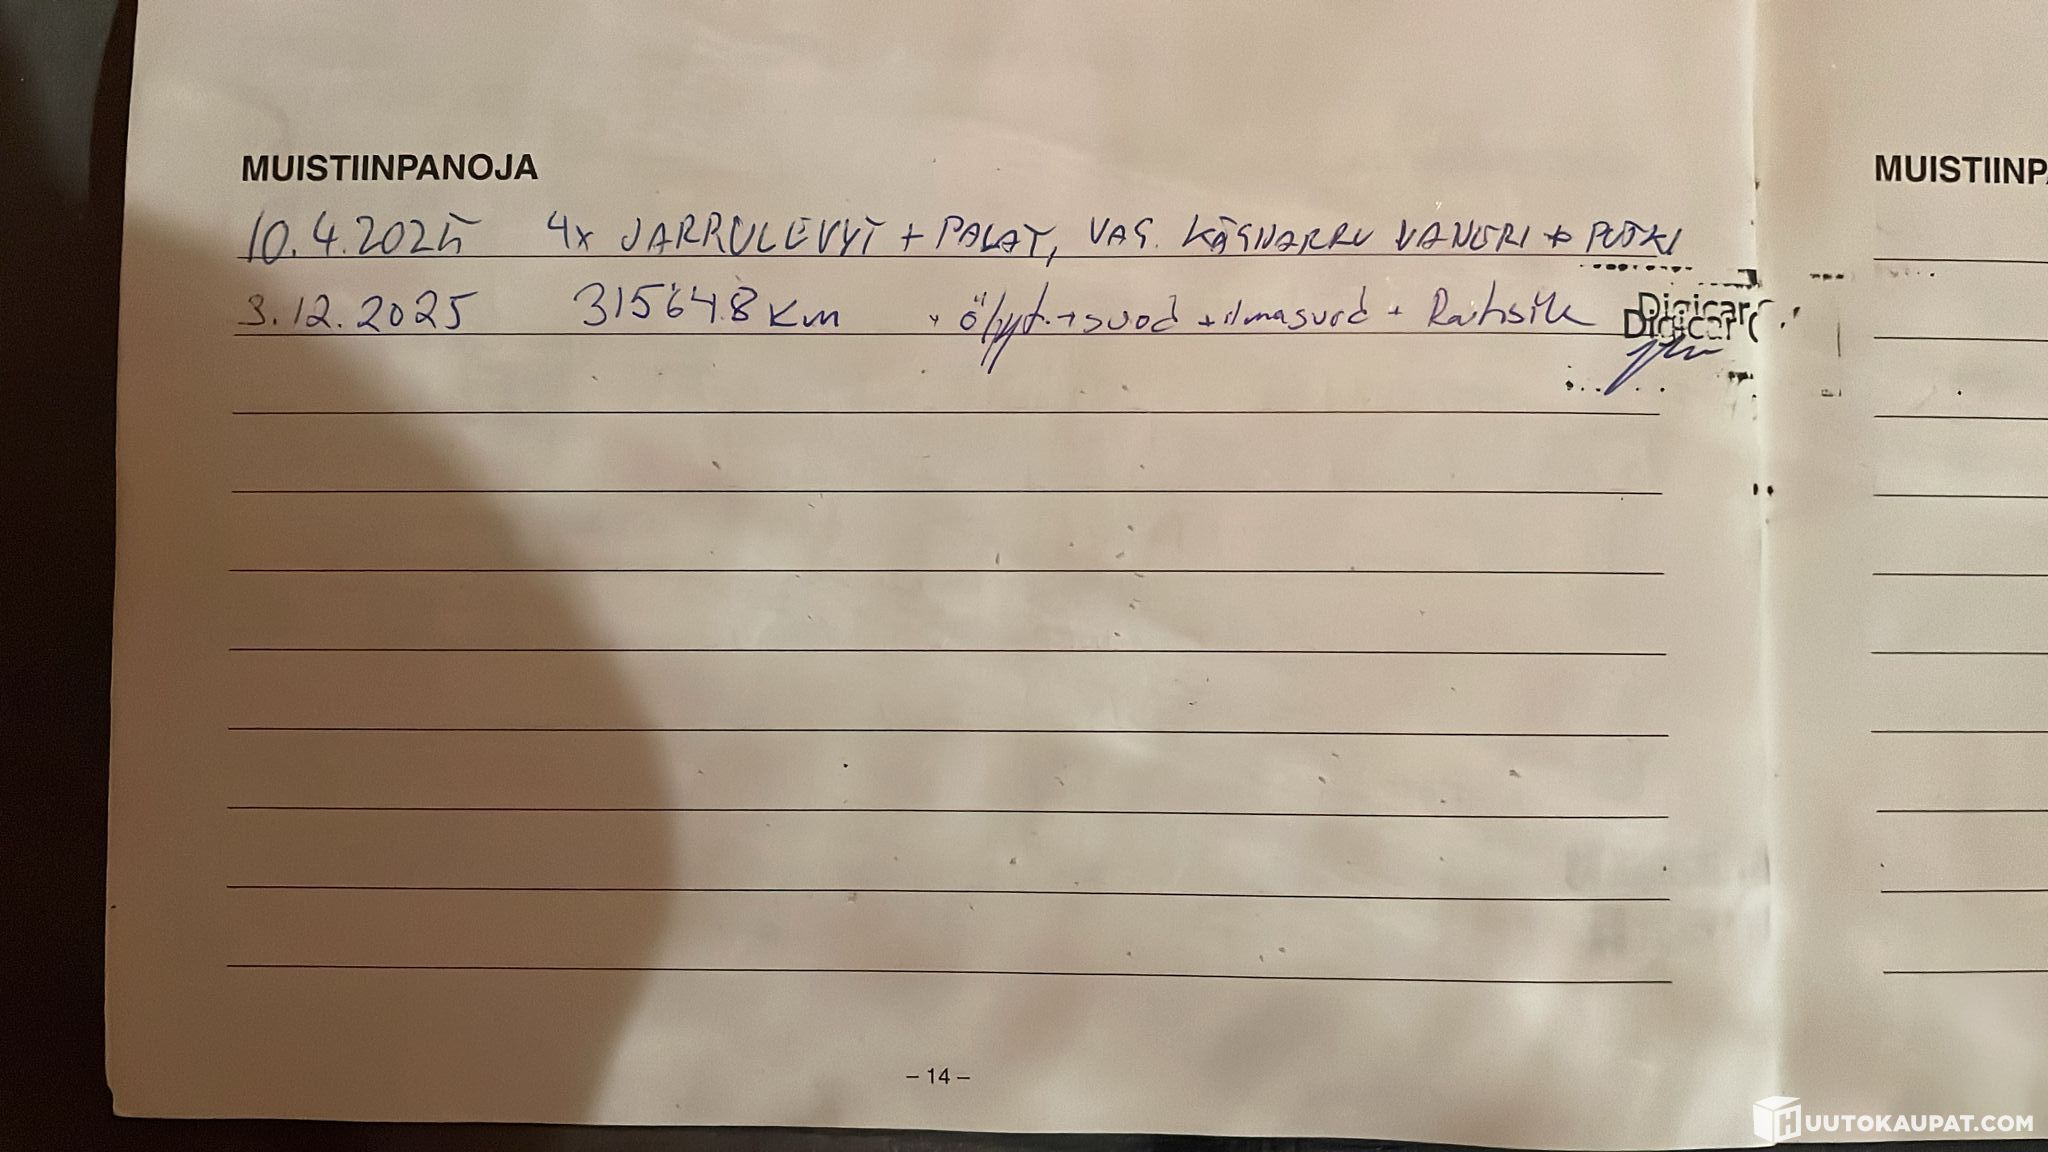 MUISTIINPANOJA
10.4.2025 4x JARRULEVYT + PALAT, VAS. KÄSIJARRU VAIJERI + PUTKI
3.12.2025 315648 km + öljyt + suod + ilmasuod + Raitisilm
Digicar
Digicar
– 14 –
MUISTIINPA
HUUTOKAUPAT.COM